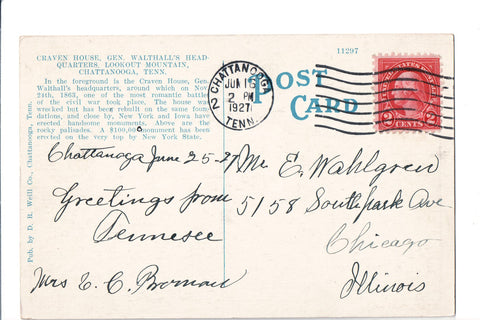 CRAVEN HOUSE, GEN. WALTHALL'S HEAD-
QUARTERS, LOOKOUT MOUNTAIN,
CHATTANOOGA, TENN.
In the foreground is the Craven House, Gen.
Walthall's headquarters, around which on Nov.
24th, 1863, one of the most romantic battles
of the civil war took place. The house was
wrecked but has been rebuilt on the same foun-
dations, and close by, New York and Iowa have
erected handsome monuments. Above are the
rocky palisades. A $100,00 monument has been
erected on the very top by New York State.
Pub. by D. R. Weill Co., Chattanooga, Tenn.
11297
POST
CARD
CHATTANOOGA
JUN
2 PM
1927
TENN.
2
2 CENTS 2
Chattanooga June 25-27
Greetings from
Tennesee
Mrs E. C.
Mr E. Wahlgren
5158 Southpark Ave
Chicago
Illinois